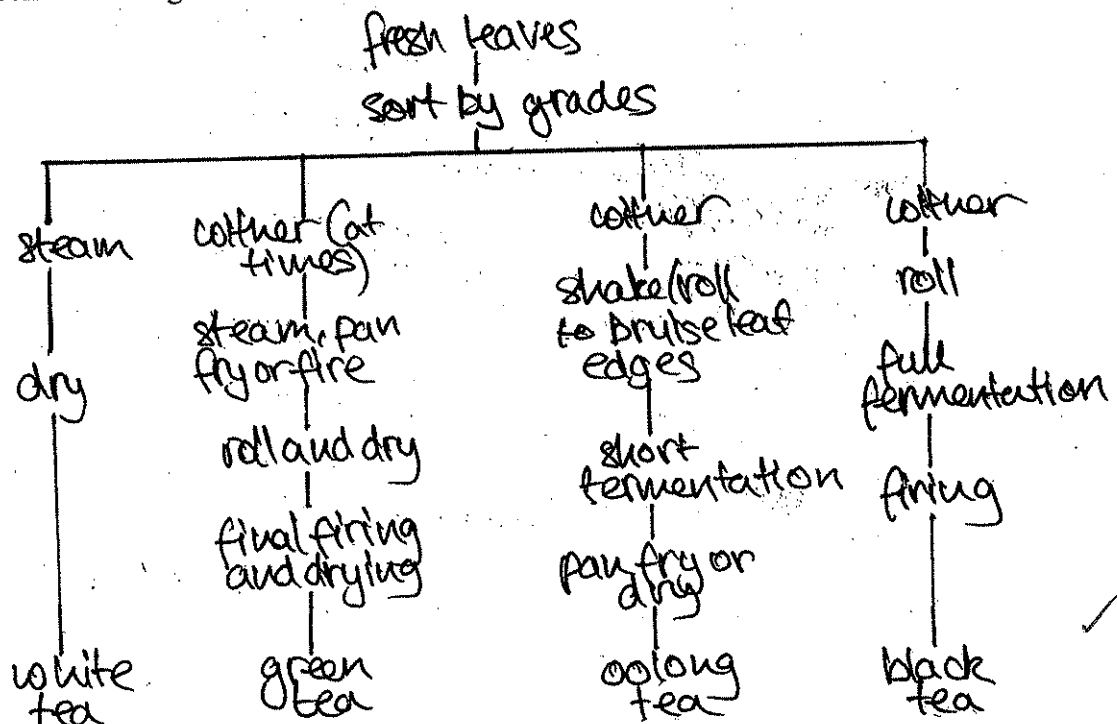 fresh leaves
sort by grades
steam
dry
white
tea
wither (at
times)
steam, pan
fry or fire
roll and dry
final firing
and drying
green
tea
wither
shake/roll
to bruise leaf
edges
short
fermentation
pan fry or
dry
oolong
tea
wither
roll
full
fermentation
firing
black
tea